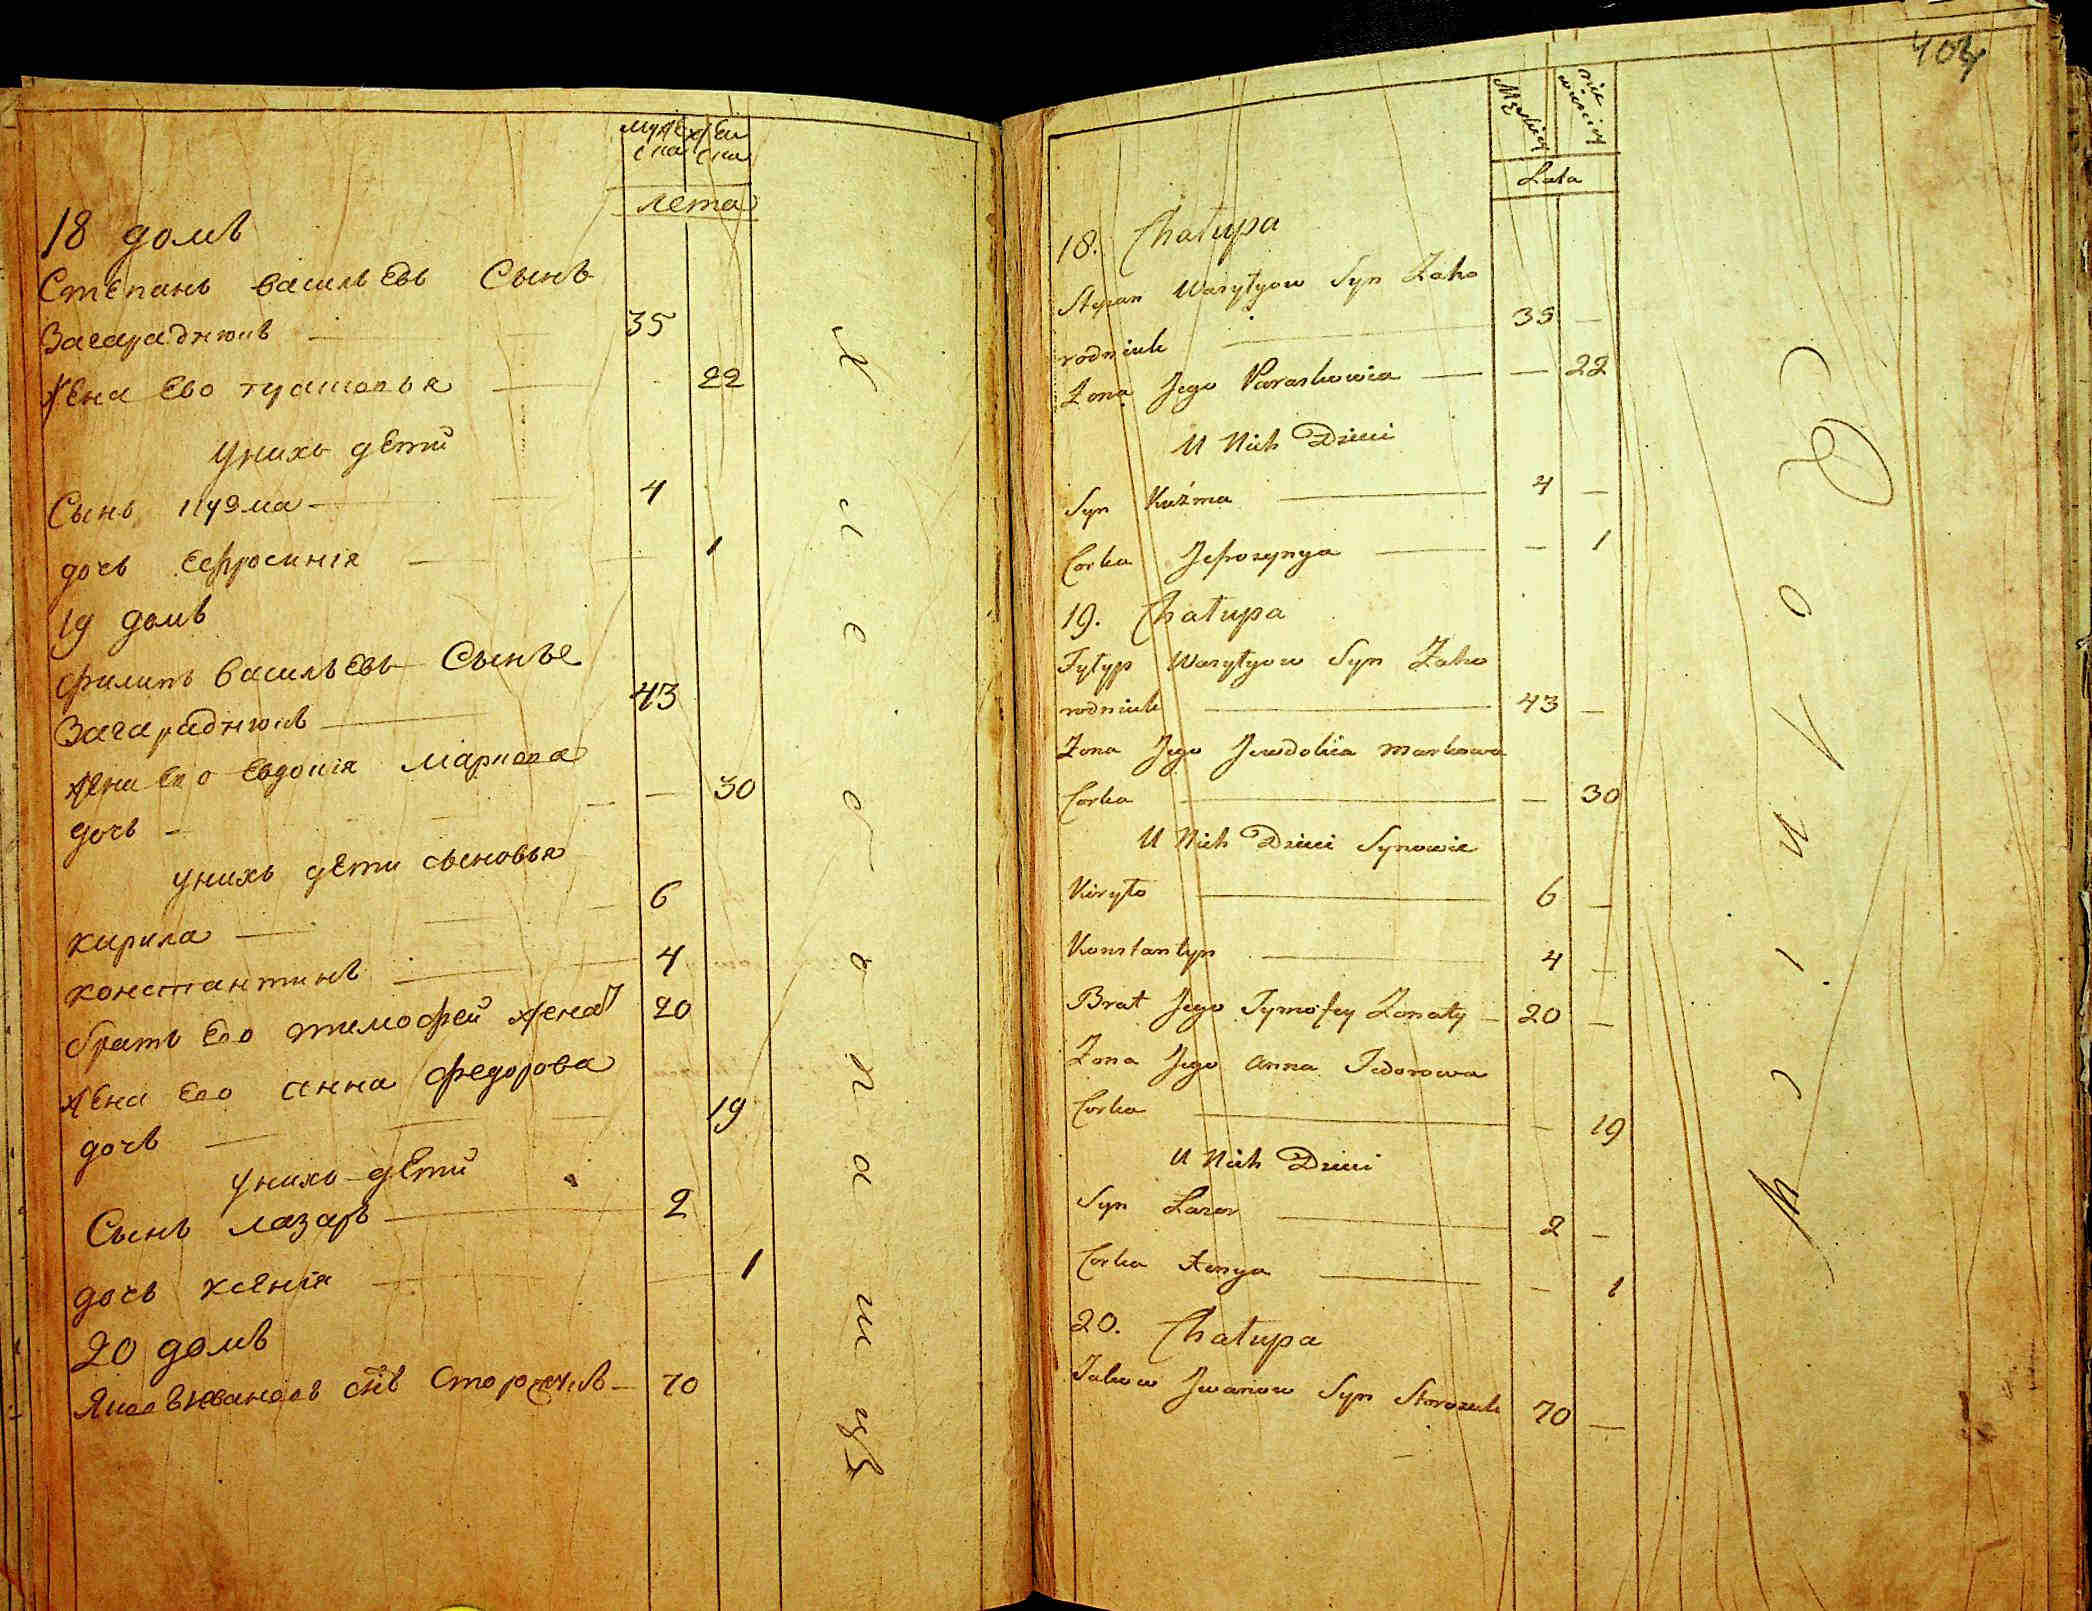 муже
ска
жен
ска
лета
18 домъ
Степанъ васильевъ Сынъ
Загараднюкъ
35
жена ево
22
унихъ дети
Сынъ кузма
4
дочь ефросинія
1
19 домъ
филипъ васильевъ Сынъ
Загараднюкъ
43
жена ево евдокія маркова
дочь
30
унихъ дети сыновья
кирила
6
константинъ
4
братъ ево тимофей женат
20
жена ево анна федорова
дочь
19
унихъ дети
Сынъ лазаръ
2
дочь ксенія
1
20 домъ
Яковъ ивановъ снъ Сторожукъ
70
404
Męskiey
Lata
18. Chałupa
Stepan Wasyłyow Syn Zaho
rodniuk
35 —
Zona Jego Paraskowia — — 22
U Nich Dzieci
Syn Kuźma — 4 —
Corka Jefrosynya — — 1
19. Chałupa
Fyłyp Wasyłyow Syn Zaho
rodniuk — 43 —
Zona Jego Jewdokia Markowa
Corka — — 30
U Nich Dzieci Synowie
Kiryło — 6 —
Konstantyn — 4 —
Brat Jego Tymofey Zonaty — 20 —
Zona Jego Anna Fedorowa
Corka — — 19
U Nich Dzieci
Syn Lazar — 2 —
Corka Xenya — — 1
20. Chałupa
Jakow Jwanow Syn Storozuk 70 —